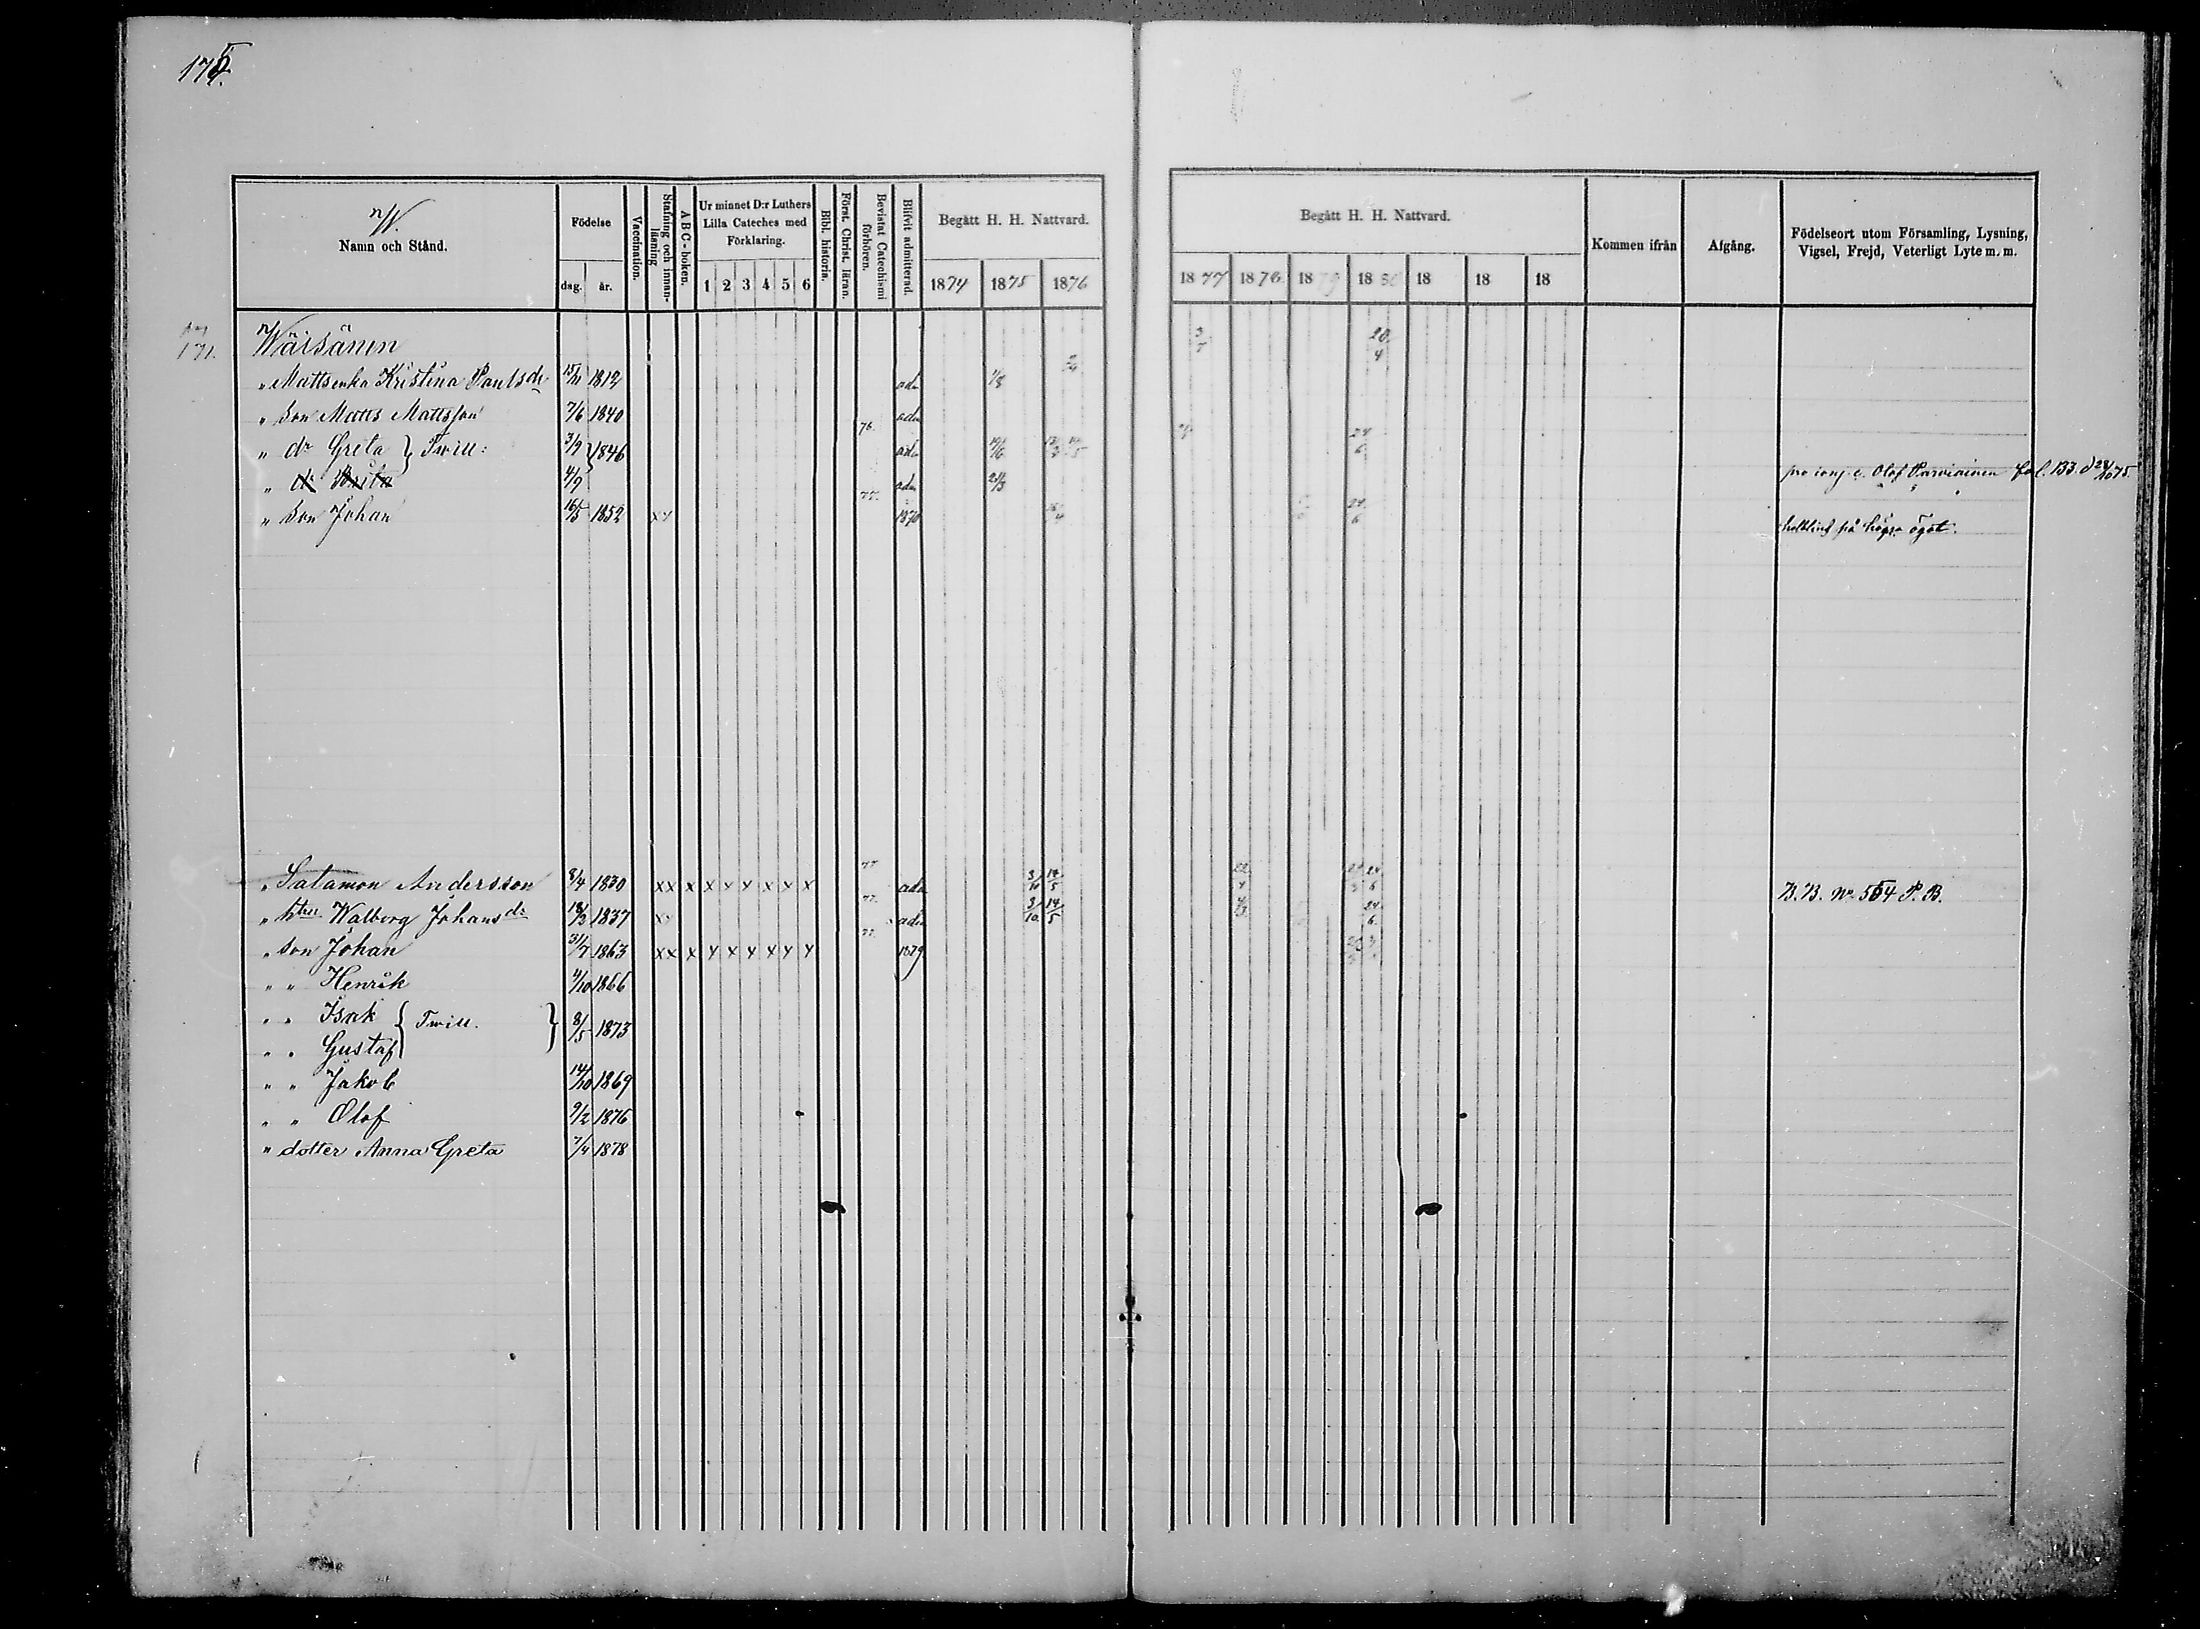 175.
W.
Namn och Stånd.
Födelse
dag.
år.
Vaccination.
Stafning och innanläsning
ABC-boken.
Ur minnet D:r Luthers Lilla Cateches med Förklaring.
1 2 3 4 5 6
Bibl. historia.
Först. Christ. läran.
Bevistat Catechismi förhören.
Blifvit admitterad.
Begått H. H. Nattvard.
1874 1875 1876
Begått H. H. Nattvard.
1877 1878 1879 1880 18 18 18
Kommen ifrån
Afgång.
Födelseort utom Församling, Lysning, Vigsel, Frejd, Veterligt Lyte m. m.
171. Wäisänen 3/7 20/4
" Mattsenka Kristina Paulsdr 15/11 1812 adm
" Son Matts Mattsson 7/6 1840 adm
76.
" dr Greta } Twill: 3/9 1846 adm 24/6
" dr Brita 4/9 adm 21/3 pro conj. c. Olof Parviainen fol. 133. d 24/10 75.
77.
" Son Johan 16/5 1852 x x 1870 24/6 halfblind på högra ögat.
77
" Salamon Andersson 8/4 1830 x x x x x x x x x adm 3/10 14/5 24/6 B. B. No 564 P. B.
77.
" hru Walborg Johansdr 18/2 1837 x x adm 3/10 14/5 24/6
77.
" son Johan 31/7 1863 x x x x x x x x x 1879
" " Henrik 4/10 1866
" " Isak { Twill. } 8/5 1873
" " Gustaf
" " Jakob 14/10 1869
" " Olof 9/2 1876
" dotter Anna Greta 7/4 1878